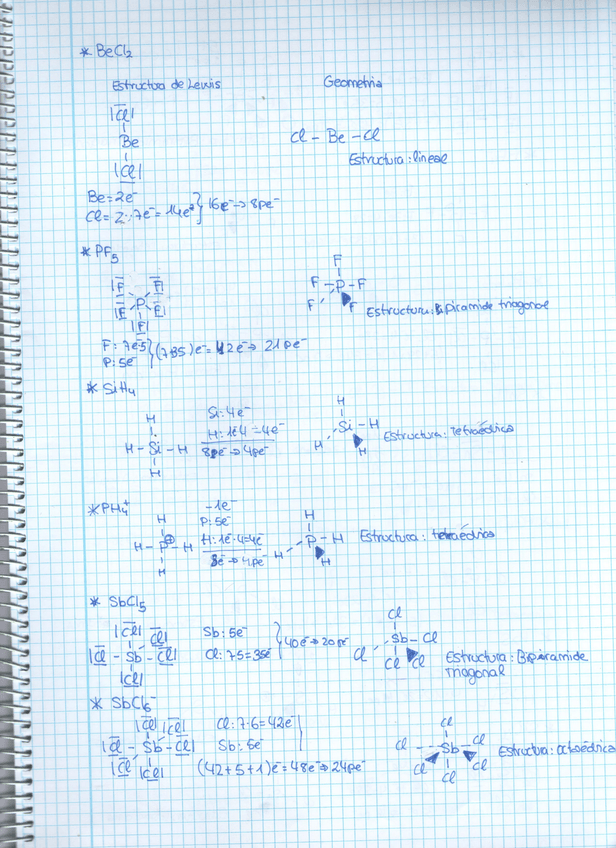 * BeCl2
Estructura de Lewis
Geometria
|Cl|
Be
|Cl|
Cl - Be - Cl
Estructura: lineal
Be = 2e⁻
Cl = 2·7e⁻ = 14e⁻ } 16e⁻ → 8pe⁻
* PF5
|F F|
P
|F F|
|F|
F
F - P - F
F F
Estructura: Bipiramide triagonal
F: 7e·5
P: 5e⁻
e⁻ → 21pe⁻
* SiH4
H
H - Si - H
H
Si: 4e⁻
H: 1e·4 = 4e⁻
8pe⁻ → 4pe⁻
H
Si - H
H H
Estructura: Tetraédrica
* PH4⁺
H
H - P⊕ - H
H
-1e⁻
P: 5e⁻
H: 1e⁻·4 = 4e⁻
8e⁻ → 4pe⁻
H
P - H
H H
Estructura: tetraédrica
* SbCl5
|Cl| Cl|
|Cl - Sb - Cl|
|Cl|
Sb: 5e⁻
Cl: 7·5 = 35e⁻ } 40e⁻ → 20pe⁻
Cl
Sb - Cl
Cl Cl Cl
Estructura: Bipiramide
Triagonal
* SbCl6⁻
|Cl| |Cl|
|Cl - Sb - Cl|
|Cl |Cl|
Cl: 7·6 = 42e⁻
Sb: 5e⁻
(42+5+1)e⁻ = 48e⁻ → 24pe⁻
Cl
Cl - Sb - Cl
Cl Cl Cl
Estructura: octaédrica